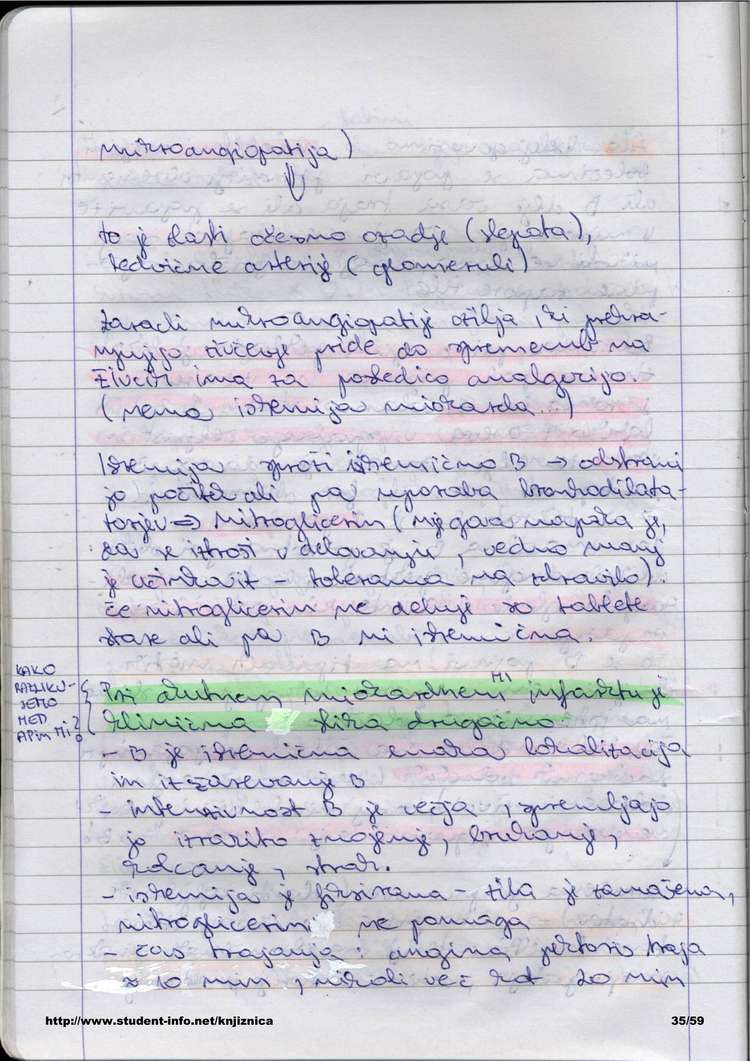 mikroangiopatija)
to je zlasti očesno ozadje (slepota),
ledvične arterije (glomeruli)
Zaradi mikroangiopatije ožilja, ki prehra-
njujejo živčevje pride do sprememb na
živcih ima za posledico analgezijo.
(nema ishemija miokarda..)
Ishemija sproži ishemično B → odstrani
jo počitek ali pa uporaba
⇒ Nitroglicerin (njegova napaka je,
da se izrosi v delovanju, vedno manj
je učinkovit - toleranca na zdravilo).
če nitroglicerin ne deluje so tablete
stare ali pa B ni ishemična.
KAKO
RAZLIKU-
JEMO
MED
AP in MI?
Pri akutnem miokardnem MI infarktu je
klinična slika drugačna.
- B je ishemična enaka lokalizacija
in izžarevanje B
- intenzivnost B je večja, spremljajo
jo izrazito znojenje, bruhanje,
kolcanje, strah.
- ishemija je fiksirana - žila je zamašena,
nitroglicerin ne pomaga
- čas trajanja: angina pektoris traja
10 min, nikoli več kot 20 min
http://www.student-info.net/knjiznica
35/59